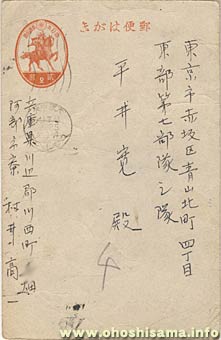 郵便はがき
東京市赤坂区青山北町四丁目
東部第七部隊ミ隊
平井寛殿
兵庫県川辺郡川西町ノ畑
村井高一
www.ohoshisama.info